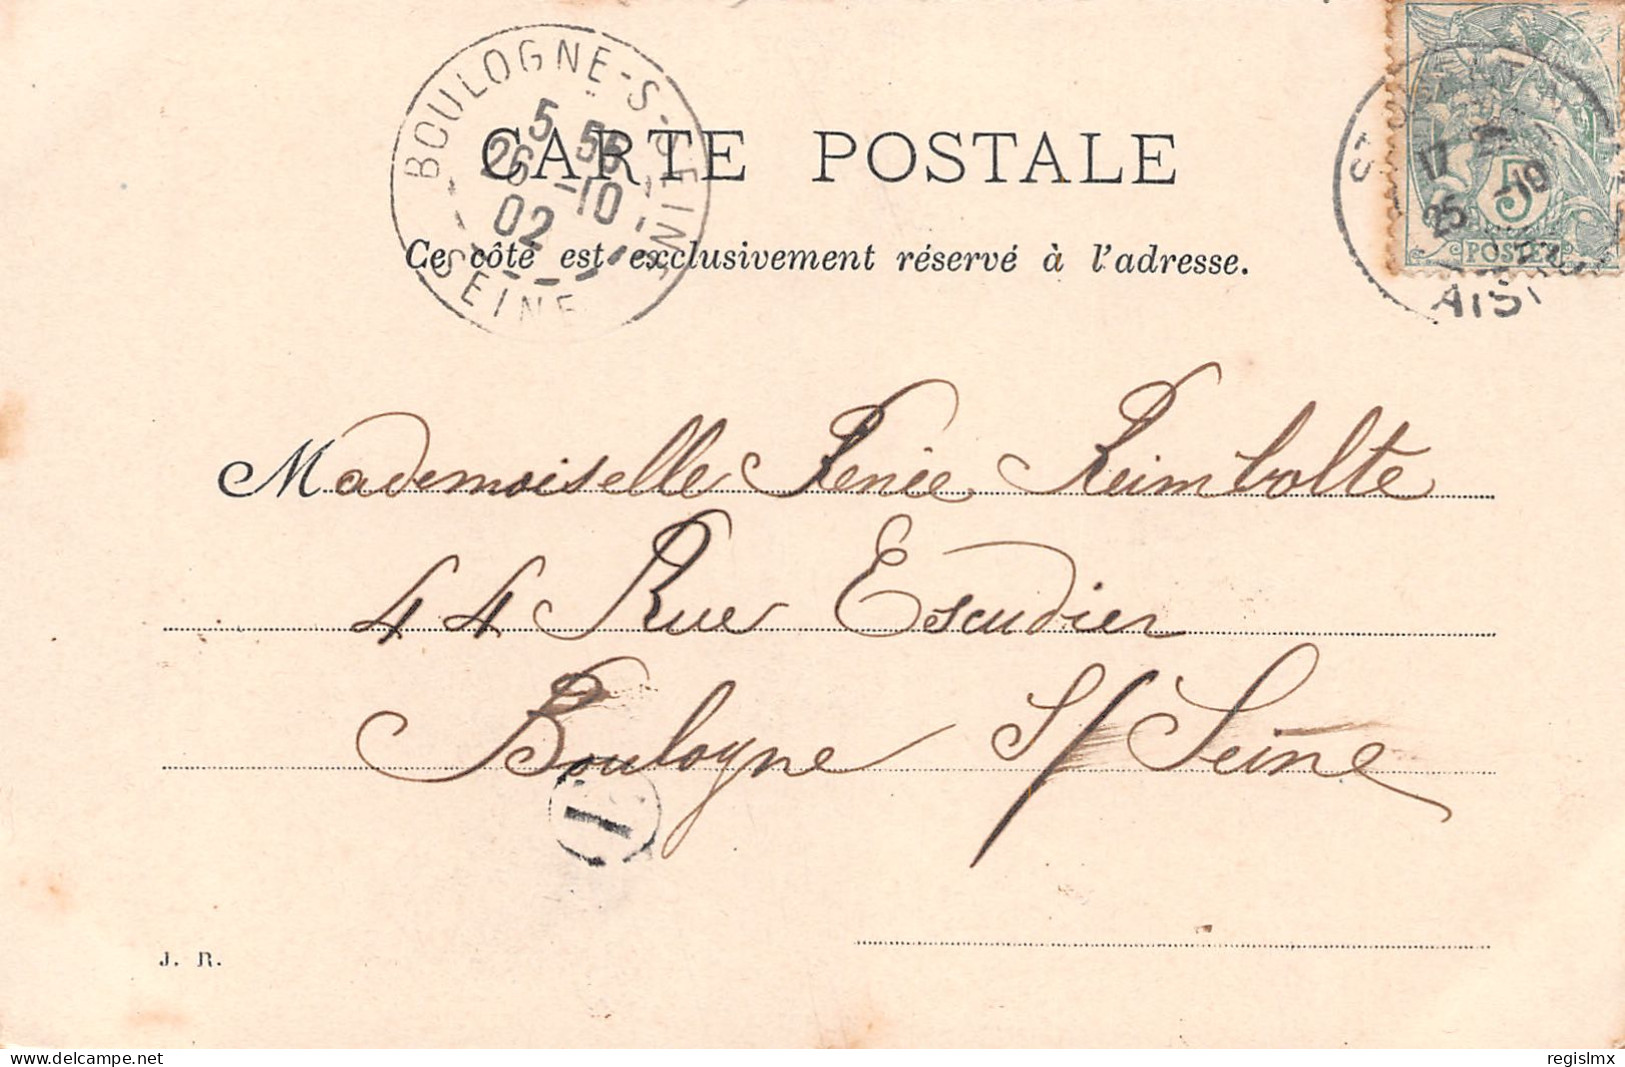 BOULOGNE-S-SEINE
5 55
26 -10
02
SEINE
CARTE POSTALE
Ce côté est exclusivement réservé à l'adresse.
17
25 -10
5
POSTES
Mademoiselle Renée Reimbolte
44 Rue Escudier
Boulogne S/ Seine
1
J. R.
regislmx
www.delcampe.net